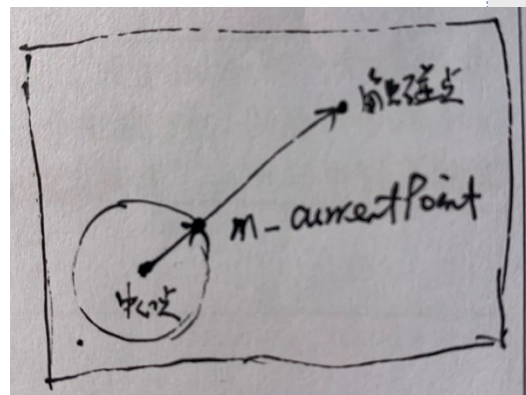 触碰点
m_currentPoint
中心点